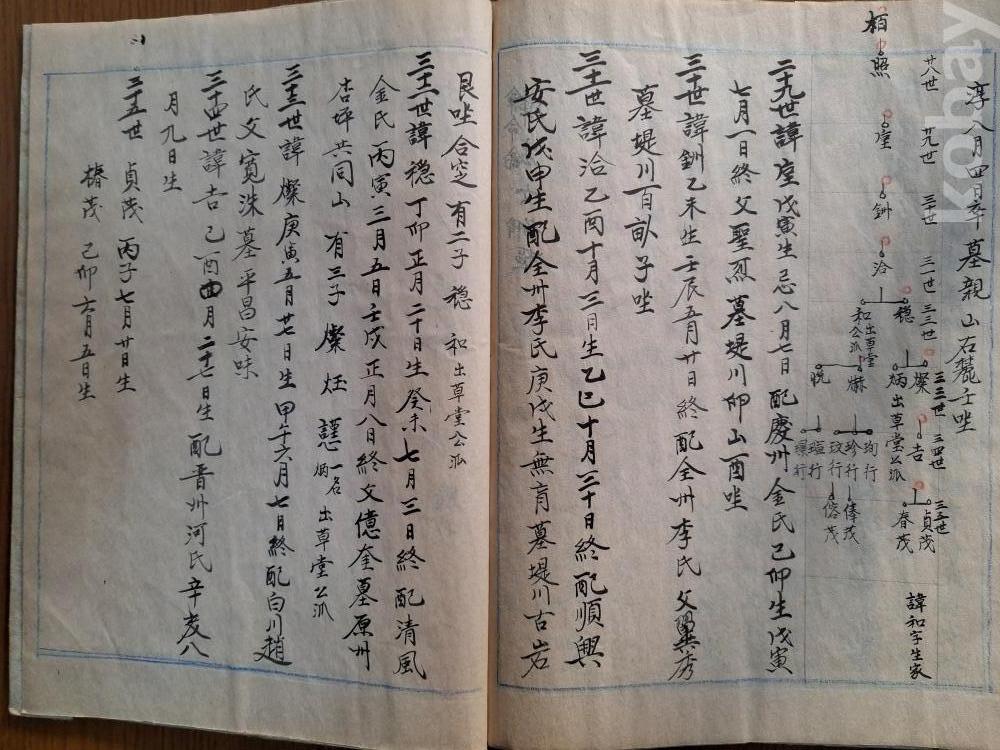 享八月四日卒墓親山石麓壬坐
廿八世 廿九世 三十世 三一世 三二世 三三世 三四世 三五世
栢 照
釧
洽
穩 和出草堂公派
燦 炳出草堂公派
吉
珣行 珍行 玟行
貞茂 春茂
俸茂 俗茂
諱和字生家
二十九世諱 戊寅生忌八月七日配慶州金氏己卯生戊寅
七月一日終父聖烈墓堤川卯山酉坐
三十世諱釧乙未生壬辰五月廿日終配全州李氏父翼秀
墓堤川百畝子坐
三十一世諱洽乙酉十月三日生乙巳十月三十日終配順興
安氏戊申生配全州李氏庚戌生無育墓堤川古岩
艮坐合窆有二子 穩 和出草堂公派
三十二世諱穩丁卯正月二十日生癸未七月三日終配清風
金氏丙寅三月五日壬戌正月八日終父億奎墓原州
杏坪共同山 有三子 燦 炷 謹一名炳出草堂公派
三十三世諱燦庚寅五月廿七日生甲午六月七日終配白川趙
氏父寬洙墓平昌安味
三十四世諱吉己酉四月二十七日生配晋州河氏辛亥八
月九日生
三十五世 貞茂 丙子七月廿日生
椿茂 己卯六月五日生
kobay